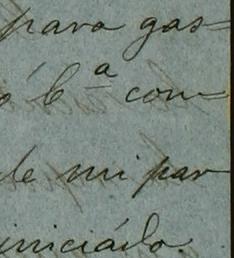 para gas-
ó 6ª com-
de mi par
iniciado.